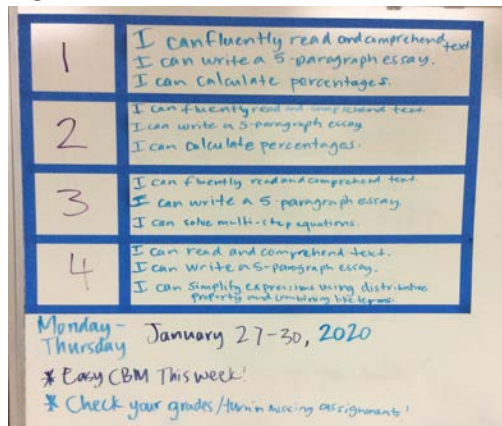 1
I can fluently read and comprehend text
I can write a 5-paragraph essay.
I can calculate percentages.
2
I can fluently read and comprehend text.
I can write a 5-paragraph essay
I can calculate percentages.
3
I can fluently read and comprehend text.
I can write a 5-paragraph essay.
I can solve multi-step equations.
4
I can read and comprehend text.
I can write a 5-paragraph essay.
I can simplify expressions using distributive
property and combining like terms.
Monday-
Thursday January 27-30, 2020
* Easy CBM This week!
* Check your grades/turn in missing assignments!